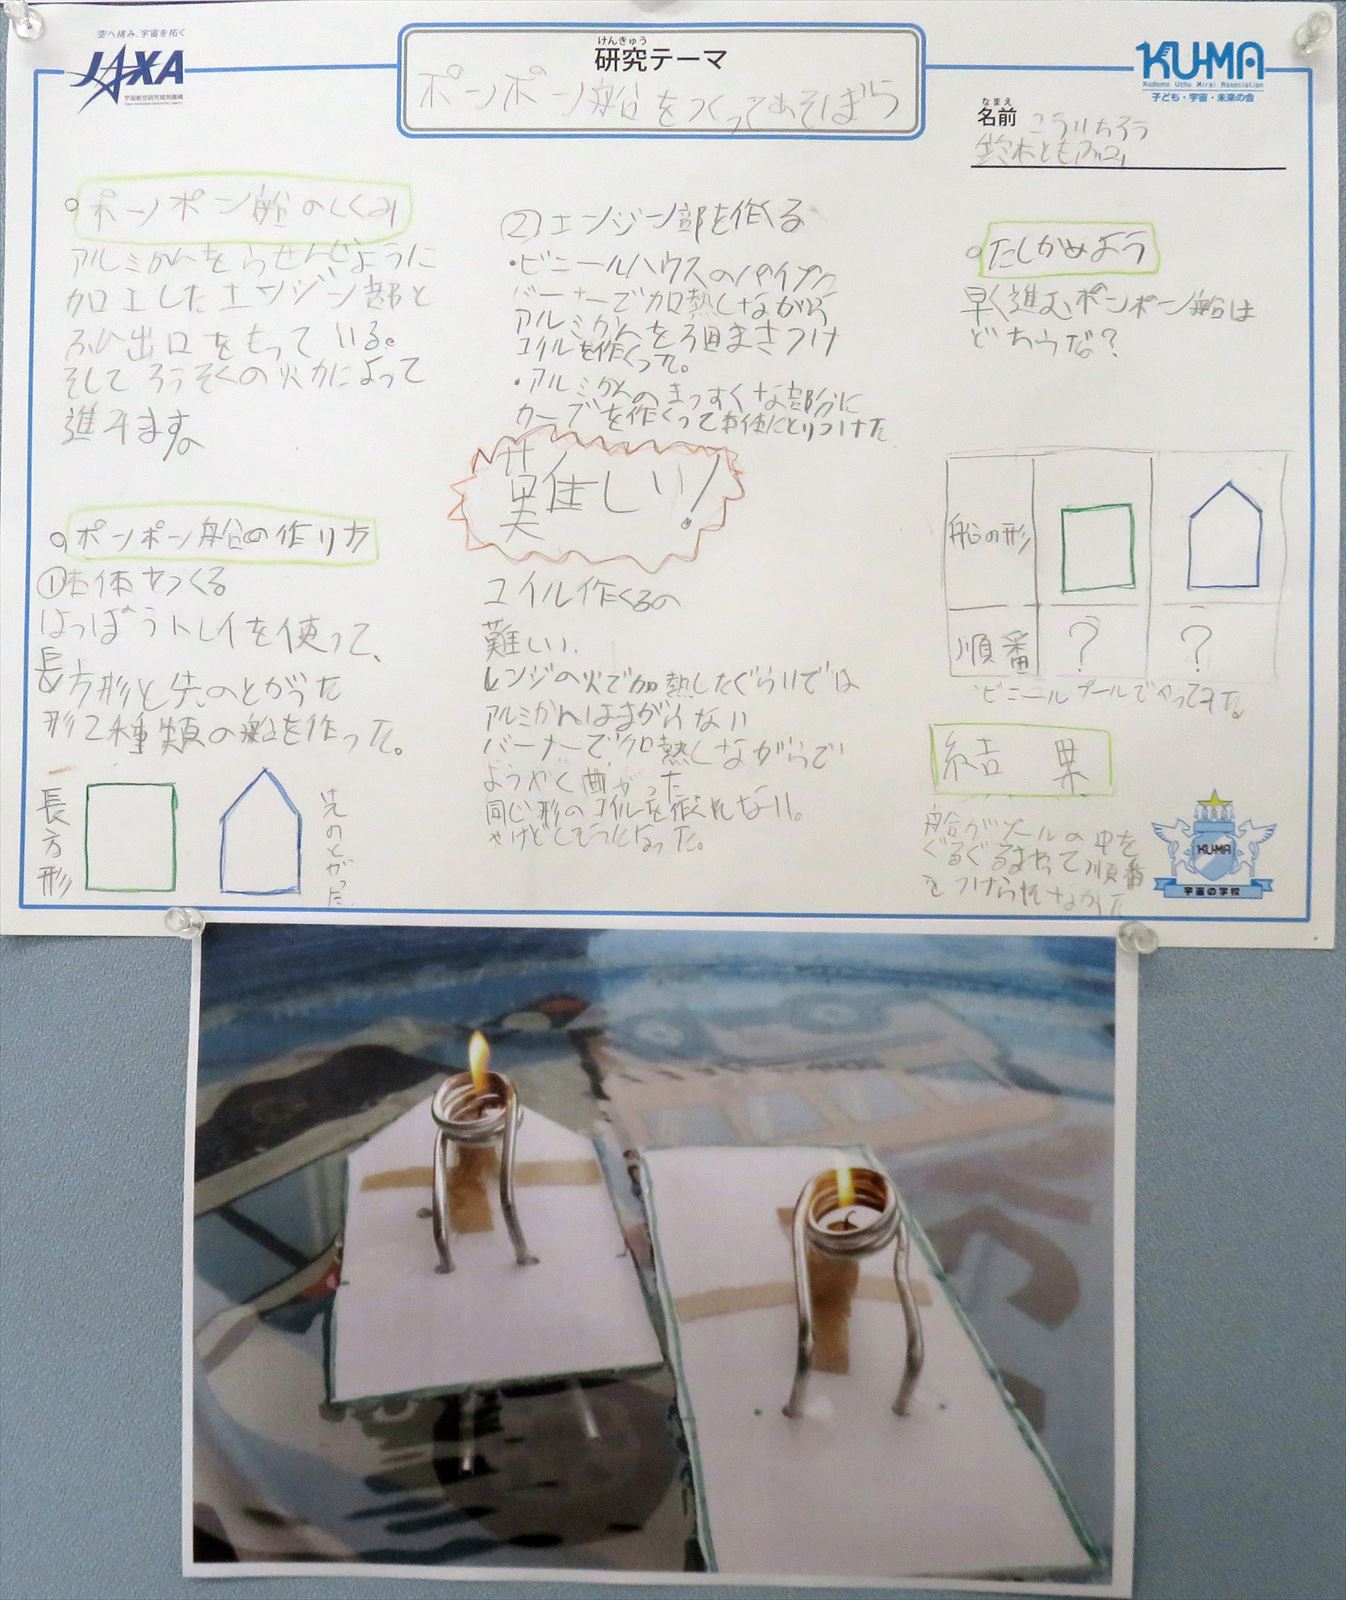 空へ挑み、宇宙を拓く
JAXA
宇宙航空研究開発機構
けんきゅう
研究テーマ
ポンポン船をつくってあそぼう
KU-MA
Kodomo Uchu Mirai Association
子ども・宇宙・未来の会
なまえ
名前
こういちろう
鈴木とも
ポンポン船のしくみ
アルミかんをらせんじように
加工したエンジン部と
ふん出口をもっている。
そしてろうそくの火力によって
進みます。
ポンポン船の作り方
①本体をつくる
はっぽうトレイを使って、
長方形と先のとがった
形2種類の船を作った。
長方形
先のとがった
②エンジン部を作くる
・ビニールハウスのパイプに
バーナーで加熱しながら
アルミかんを3週まきつけ
コイルを作くった。
・アルミかんのまっすぐな部分に
カーブを作くって本体にとりつけた
難しい!
コイル作くるの
難しい.
レンジの火で加熱したぐらいでは
アルミかんはまがらない
バーナーで加熱しながらで
ようやく曲がった
同じ形のコイルを作くれない。
やけどしそうになった。
たしかめよう
早く進むポンポン船は
どちらだ?
船の形
順番 ? ?
ビニールプールでやってみた。
結果
船がプールの中を
ぐるぐるまわって順番
をつけられなかった
KU-MA
宇宙の学校